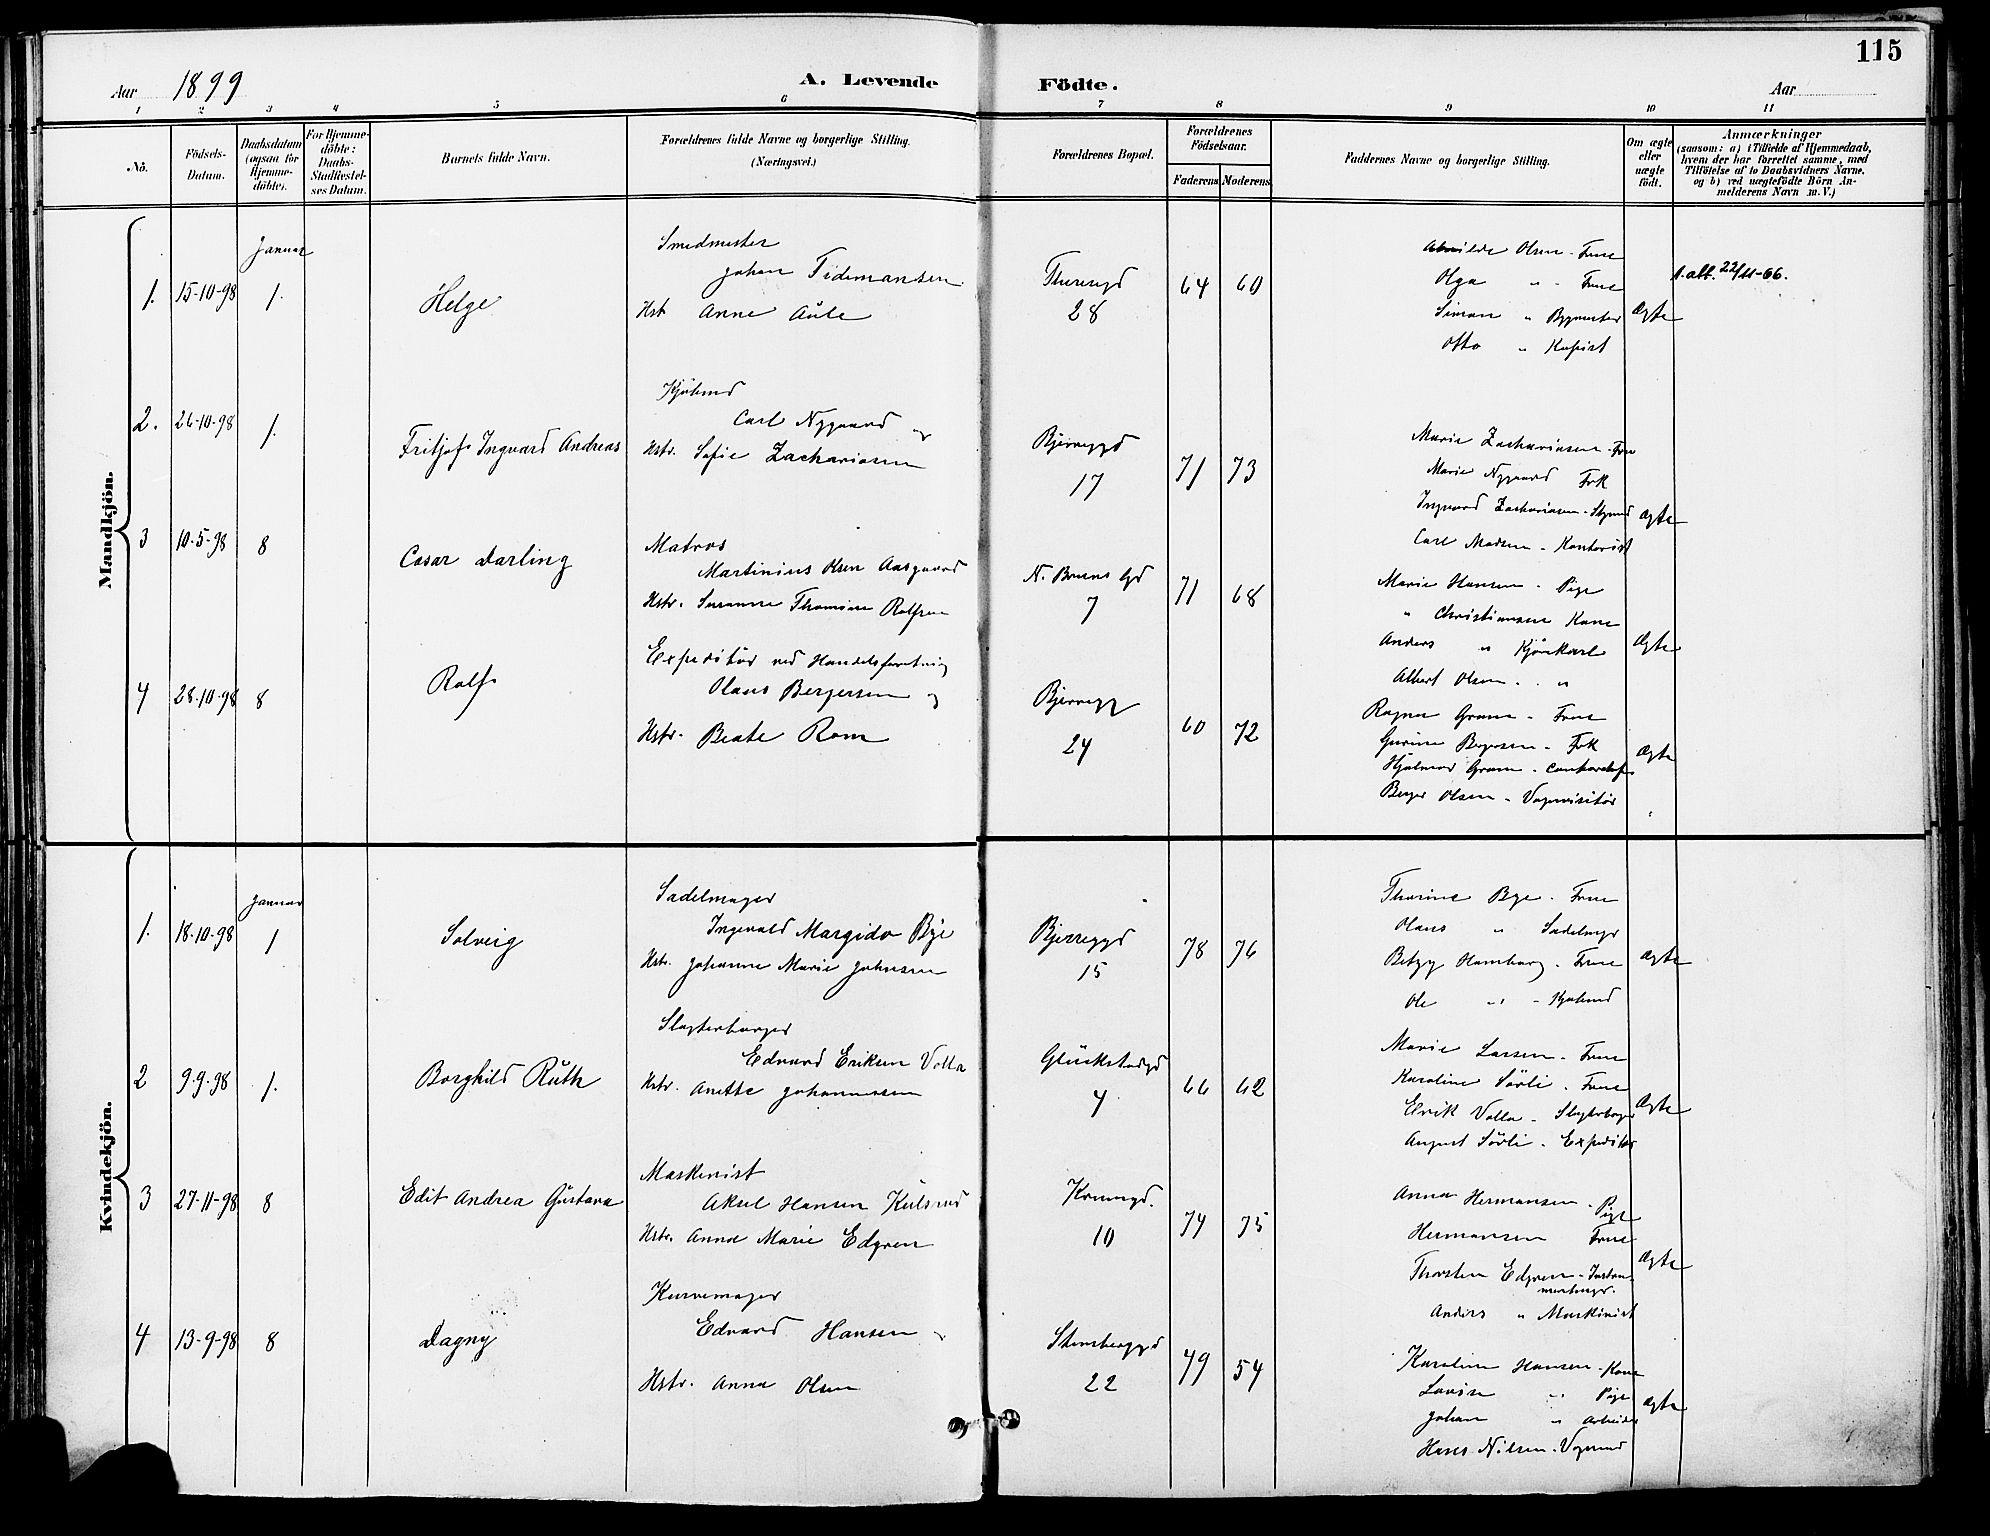 115
Aar 1899
A. Levende Födte.
Aar
1 2 3 4 5 6 7 8 9 10 11
No.
Födsels-
Datum.
Daabsdatum
(ogsaa for
Hjemme-
döbte).
For Hjemme-
döbte:
Daabs-
Stadfæstel-
ses Datum.
Barnets fulde Navn.
Forældrenes fulde Navne og borgerlige Stilling.
(Næringsvei.)
Forældrenes Bopæl.
Forældrenes
Födselsaar.
Faderens Moderens
Faddernes Navne og borgerlige Stilling.
Om ægte
eller
uægte
födt.
Anmærkninger
(saasom: a) i Tilfælde af Hjemmedaab,
hvem der har forrettet samme, med
Tilföielse af to Daabsvidners Navne,
og b) ved uægtefödte Börn An-
melderens Navn m. V.)
Mandkjön.
Januar
1. 15-10-98 1.
Helge
Smedmester
Johan Tidemansen
Hst. Anne Aule
28
64 60
Olsen - Frue
Olga " - Frue
Simon " Bygmester
Otto " Kopist
Ægte
1. att. 22/11-66.
2. 26-10-98 1.
Fritjof Ingvard Andreas
Kjöbmd
Carl Nygaard og
Hstr. Sofie Zachariasen
Bjerregd
17
71 73
Marie Zachariasen - Frue
Marie Nygaard Frk
Ingvard Zachariasen - Skymd
Carl Madsen - Kontorist
Ægte
3 10-5-98 8
Cæsar Darling
Matros
Martinius Olsen Aasgaard
Hstr. Susanne Thomine Rolfsen
N. Bruns Gd
7
71 68
Marie Hansen - Pige
" Christiansen Kone
Anders " Kjörekarl
Albert Olsen - "
Ægte
4 28-10-98 8
Rolf
Expeditör ved Handelsforretning
Olaus Bergersen og
Hstr. Beate Rom
Bjerregt
24
60 72
Ragna Gram - Frue
Gurine Bergersen - Frk
Hjalmar Gram -
Berger Olsen - Vognvisitör
Ægte
Kvindekjön.
Januar
1. 18-10-98 1
Solveig
Sadelmager
Ingevald Margido Bye
Hstr. Johanne Marie Johnsen
Bjerregd
15
78 76
Thorine Bye - Frue
Olaus " Sadelmgr
Betzy Hamborg - Frue
Ole " - Kjöbmd
Ægte
2 9-9-98 1.
Borghild Ruth
Slagterborger
Edvard Eriksen Volla
Hstr. Anette Johannessen
Glückstadgd
4
66 62
Marie Larsen - Frue
Karoline Sörli - Frue
Erik Volla - Slagterborger
August Sörli - Expeditör
Ægte
3 27-11-98 8
Edit Andrea Gustava
Maskinist
Aksel Hansen Kulsrud
Hstr. Anna Marie Edgren
10
74 75
Anna Hermansen - Pige
Hermansen Frue
Thorsten Edgren - Instru-
mentmgr.
Anders " Maskinist
Ægte
4 13-9-98 8
Dagny
Kurvemager
Edvard Hansen og
Hstr. Anna Olsen
Stensberggd
22
49 54
Karoline Hansen - Kone
Lovise " Pige
Johan " Arbeider
Hans Nilsen - Vognmd
Ægte